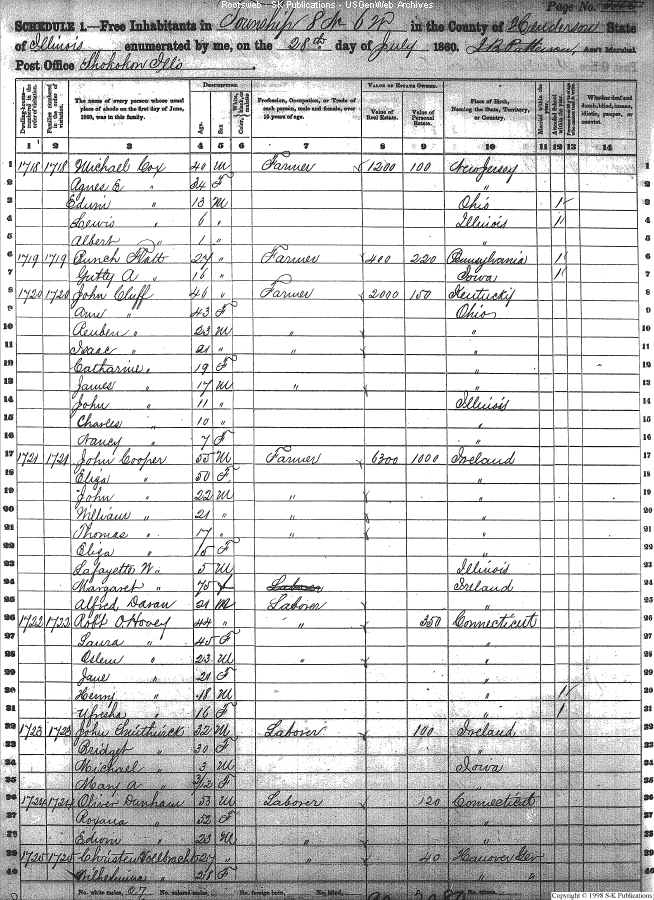 Rootsweb - SK Publications - USGenWeb Archives
Page No.
SCHEDULE 1.—Free Inhabitants in Township 8 N 6 W in the County of Henderson State
of Illinois enumerated by me, on the 28th day of July 1860. Ass't Marshal
Post Office Shokokon Ills
Dwelling-houses numbered in the order of visitation. Families numbered in the order of visitation. The name of every person whose usual place of abode on the first day of June, 1860, was in this family. DESCRIPTION. Age. Sex. Color, Profession, Occupation, or Trade of each person, male and female, over 15 years of age. VALUE OF ESTATE OWNED. Value of Real Estate. Value of Personal Estate. Place of Birth, Naming the State, Territory, or Country. Married within the year. Attended School within the year. Whether deaf and dumb, blind, insane, idiotic, pauper, or convict.
1 2 3 4 5 6 7 8 9 10 11 12 13 14
1 1718 1718 Michael Cox 40 M Farmer 1200 100 New Jersey 1
2 Agnes E " 34 F " 2
3 Edwin " 13 M Ohio 1 3
4 Lewis " 6 " Illinois 1 4
5 Albert " 1 " " 5
6 1719 1719 Bunch Flatt 27 " Farmer 400 220 Pennsylvania 1 6
7 A " 16 " Iowa 1 7
8 1720 1720 John Cluff 46 " Farmer 2000 150 Kentucky 8
9 Ann " 43 F Ohio 9
10 Reuben " 23 M " " 10
11 Isaac " 21 " " " 11
12 Catharine " 19 F " 12
13 James " 17 M " " 13
14 John " 11 " Illinois 14
15 Charles " 10 " " 15
16 Nancy " 7 F " 16
17 1721 1721 John Cooper 55 M Farmer 6300 1000 Ireland 17
18 Eliza " 50 F " 18
19 John " 22 M " " 19
20 William " 21 " " " 20
21 Thomas " 17 " " " 21
22 Eliza " 15 F " 22
23 Lafayette W " 5 M Illinois 23
24 Margaret " 75 Laborer Ireland 24
25 Alfred Davan 21 M Laborer " 25
26 1722 1722 Robt O Hovey 44 " " 350 Connecticut 26
27 Laura " 45 F " 27
28 " 23 M " " 28
29 Jane " 21 F " 29
30 Henry " 18 M " 1 30
31 " 16 F " 1 31
32 1723 1723 John 32 M Laborer 100 Ireland 32
33 Bridget " 30 F " 33
34 Michael " 3 M Iowa 34
35 Mary A " 3/12 F " 35
36 1724 1724 Oliver Dunham 53 M Laborer 120 Connecticut 36
37 Roxana " 52 F " 37
38 Edwin " 23 M " " 38
39 1725 1725 Christen Vollbracht 27 " " 40 Hanover Ger 39
40 Wilhelmina " 28 F " " 40
No. white males, 27 No. colored males, No. foreign born, No. blind,
Copyright © 1998 S-K Publications